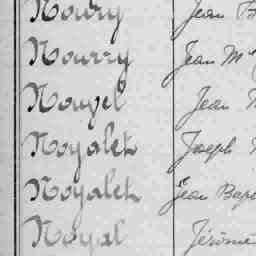 Noury Jean
Nourry Jean M
Nouzel Jean
Noyalet Joseph
Noyalet Jean Bap
Noyal Jérôme